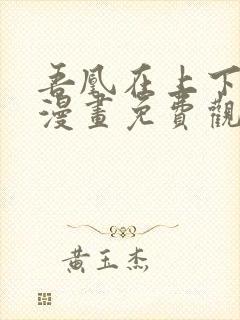 吾凰在上下
漫畫免費觀
黃玉杰